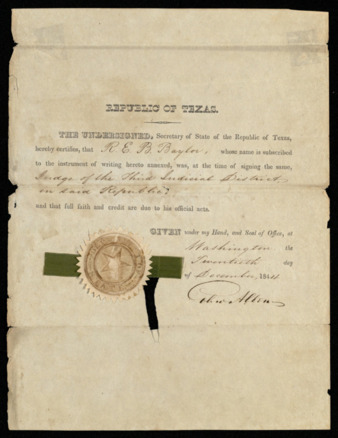 REPUBLIC OF TEXAS.
THE UNDERSIGNED, Secretary of State of the Republic of Texas,
hereby certifies, that R. E. B. Baylor, whose name is subscribed
to the instrument of writing hereto annexed, was, at the time of signing the same,
Judge of the Third Judicial District
in said Republic,
and that full faith and credit are due to his official acts.
GIVEN under my Hand, and Seal of Office, at
Washington the
Twentieth day
of December, 1844